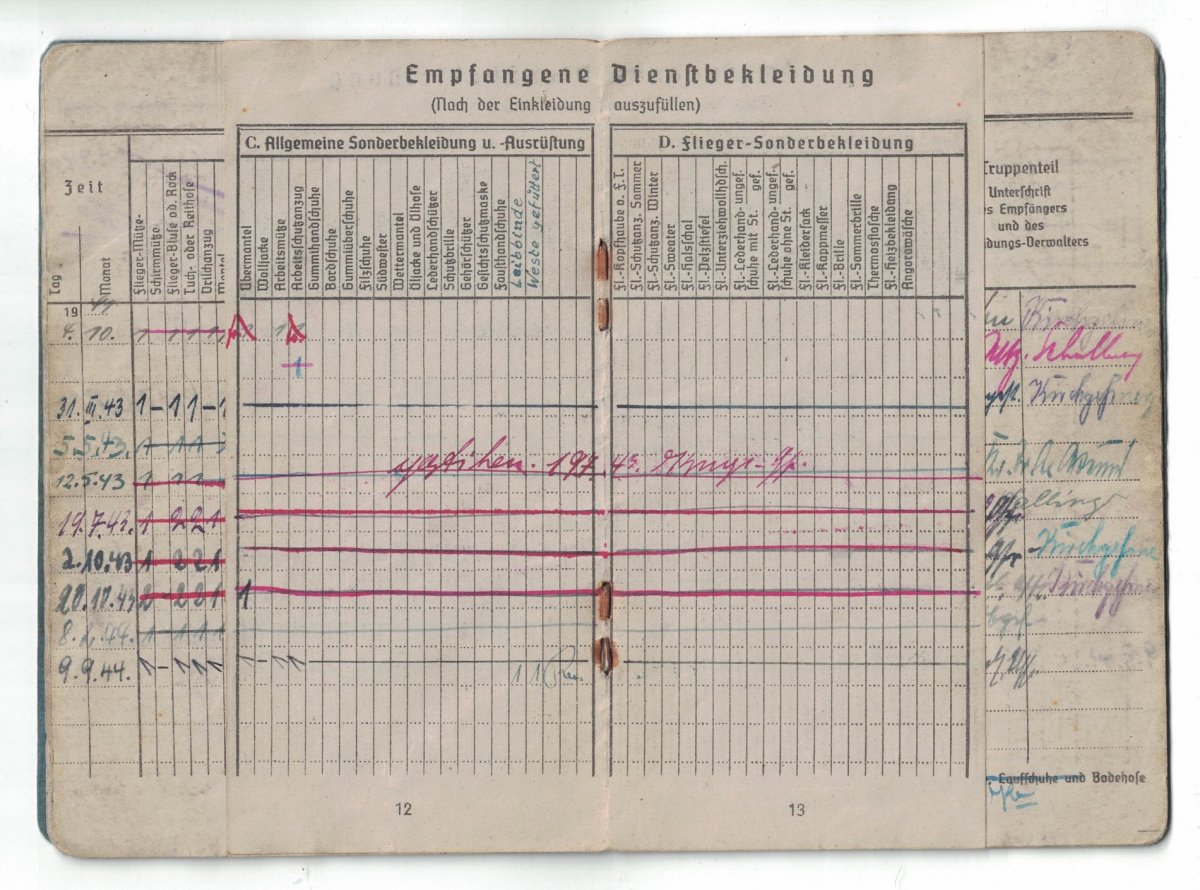 Empfangene Dienstbekleidung
(Nach der Einkleidung auszufüllen)
Zeit
Tag
Monat
Flieger-Mütze-
Schirmmütze-
Flieger-Bluse od. Rock
Tuch- oder Reithose
Drillichanzug
Mantel
C. Allgemeine Sonderbekleidung u. -Ausrüstung
Übermantel
Wolljacke
Arbeitsmütze
Arbeitsschutzanzug
Gummihandschuhe
Bordschuhe
Gummiüberschuhe
Filzschuhe
Südwester
Wettermantel
Öljacke und Ölhose
Lederhandschützer
Schutzbrille
Gehörschützer
Gesichtsschutzmaske
Fausthandschuhe
Leibbinde
Weste gefüttert
D. Flieger-Sonderbekleidung
Fl.-Kopfhaube o. F.T.
Fl.-Schutzanz. Sommer
Fl.-Schutzanz. Winter
Fl.-Sweater
Fl.-Halsschal
Fl.-Pelzstiefel
Fl.-Unterziehwollhdsch.
Fl.-Lederhand-ungef.
schuhe mit St. gef.
Fl.-Lederhand-ungef.
schuhe ohne St. gef.
Fl.-Kleidersack
Fl.-Kappmesser
Fl.-Brille
Fl.-Sommerbrille
Thermosflasche
Fl.-Heizbekleidung
Angorawäsche
Truppenteil
Unterschrift
es Empfängers
und des
dungs-Verwalters
19 41
4. 10. 1 1 1 1
1
31. III. 43 1 - 1 1 - 1
5.5.43. 1 1 1
12.5.43 1 1 1
197.43.
19.7.43. 1 2 2 1
2.10.43 1 2 2 1
20.10.43 2 - 2 2 1 1
8.2.44. 1 1 1 1
9.9.44. 1 - 1 1 1 1 - 1 1 1 1
Laufschuhe und Badehose
12
13